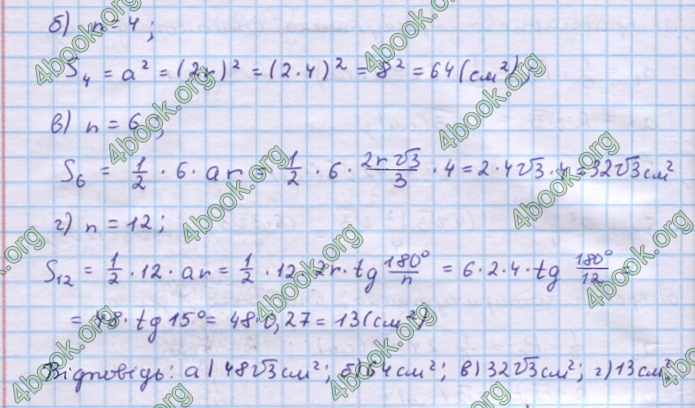 б) n = 4;
S₄ = a² = (2r)² = (2·4)² = 8² = 64 (см²)
в) n = 6;
S₆ = 1/2 · 6 · ar = 1/2 · 6 · 2r√3/3 · 4 = 2·4√3·4 = 32√3 см²
г) n = 12;
S₁₂ = 1/2 · 12 · ar = 1/2 · 12 · 2r · tg 180°/n = 6·2·4·tg 180°/12 =
= 48 · tg 15° = 48·0,27 = 13 (см²)
Відповідь: а) 48√3 см²; б) 64 см²; в) 32√3 см²; г) 13 см²
4book.org
4book.org
4book.org
4book.org
4book.org
4book.org
4book.org
4book.org
4book.org
4book.org
4book.org